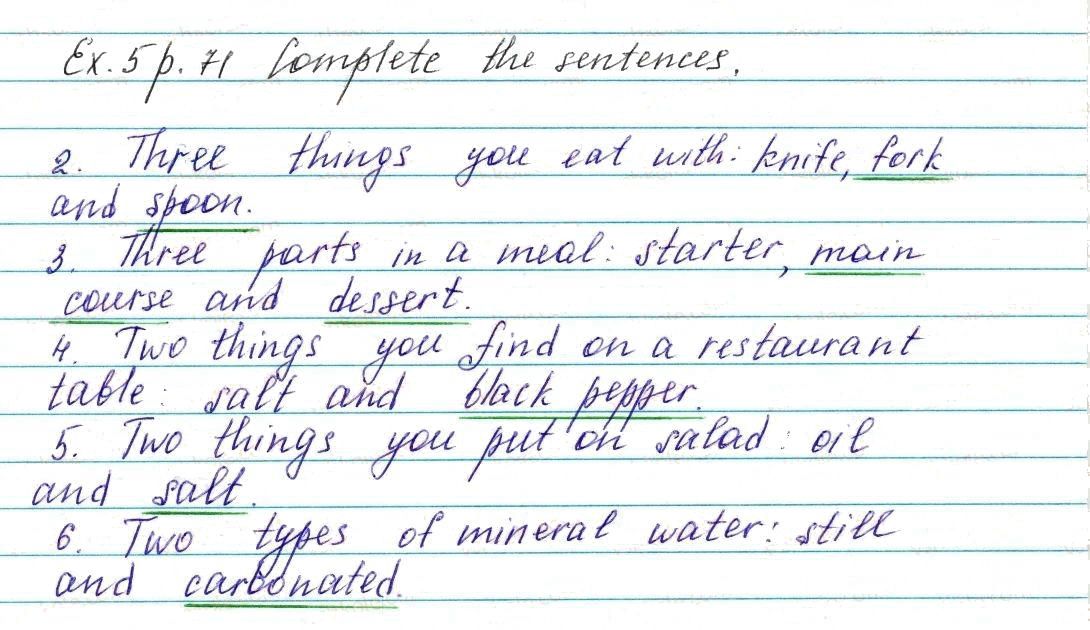 Ex. 5 p. 71 Complete the sentences.
2. Three things you eat with: knife, fork
and spoon.
3. Three parts in a meal: starter, main
course and dessert.
4. Two things you find on a restaurant
table: salt and black pepper.
5. Two things you put on salad: oil
and salt.
6. Two types of mineral water: still
and carbonated.